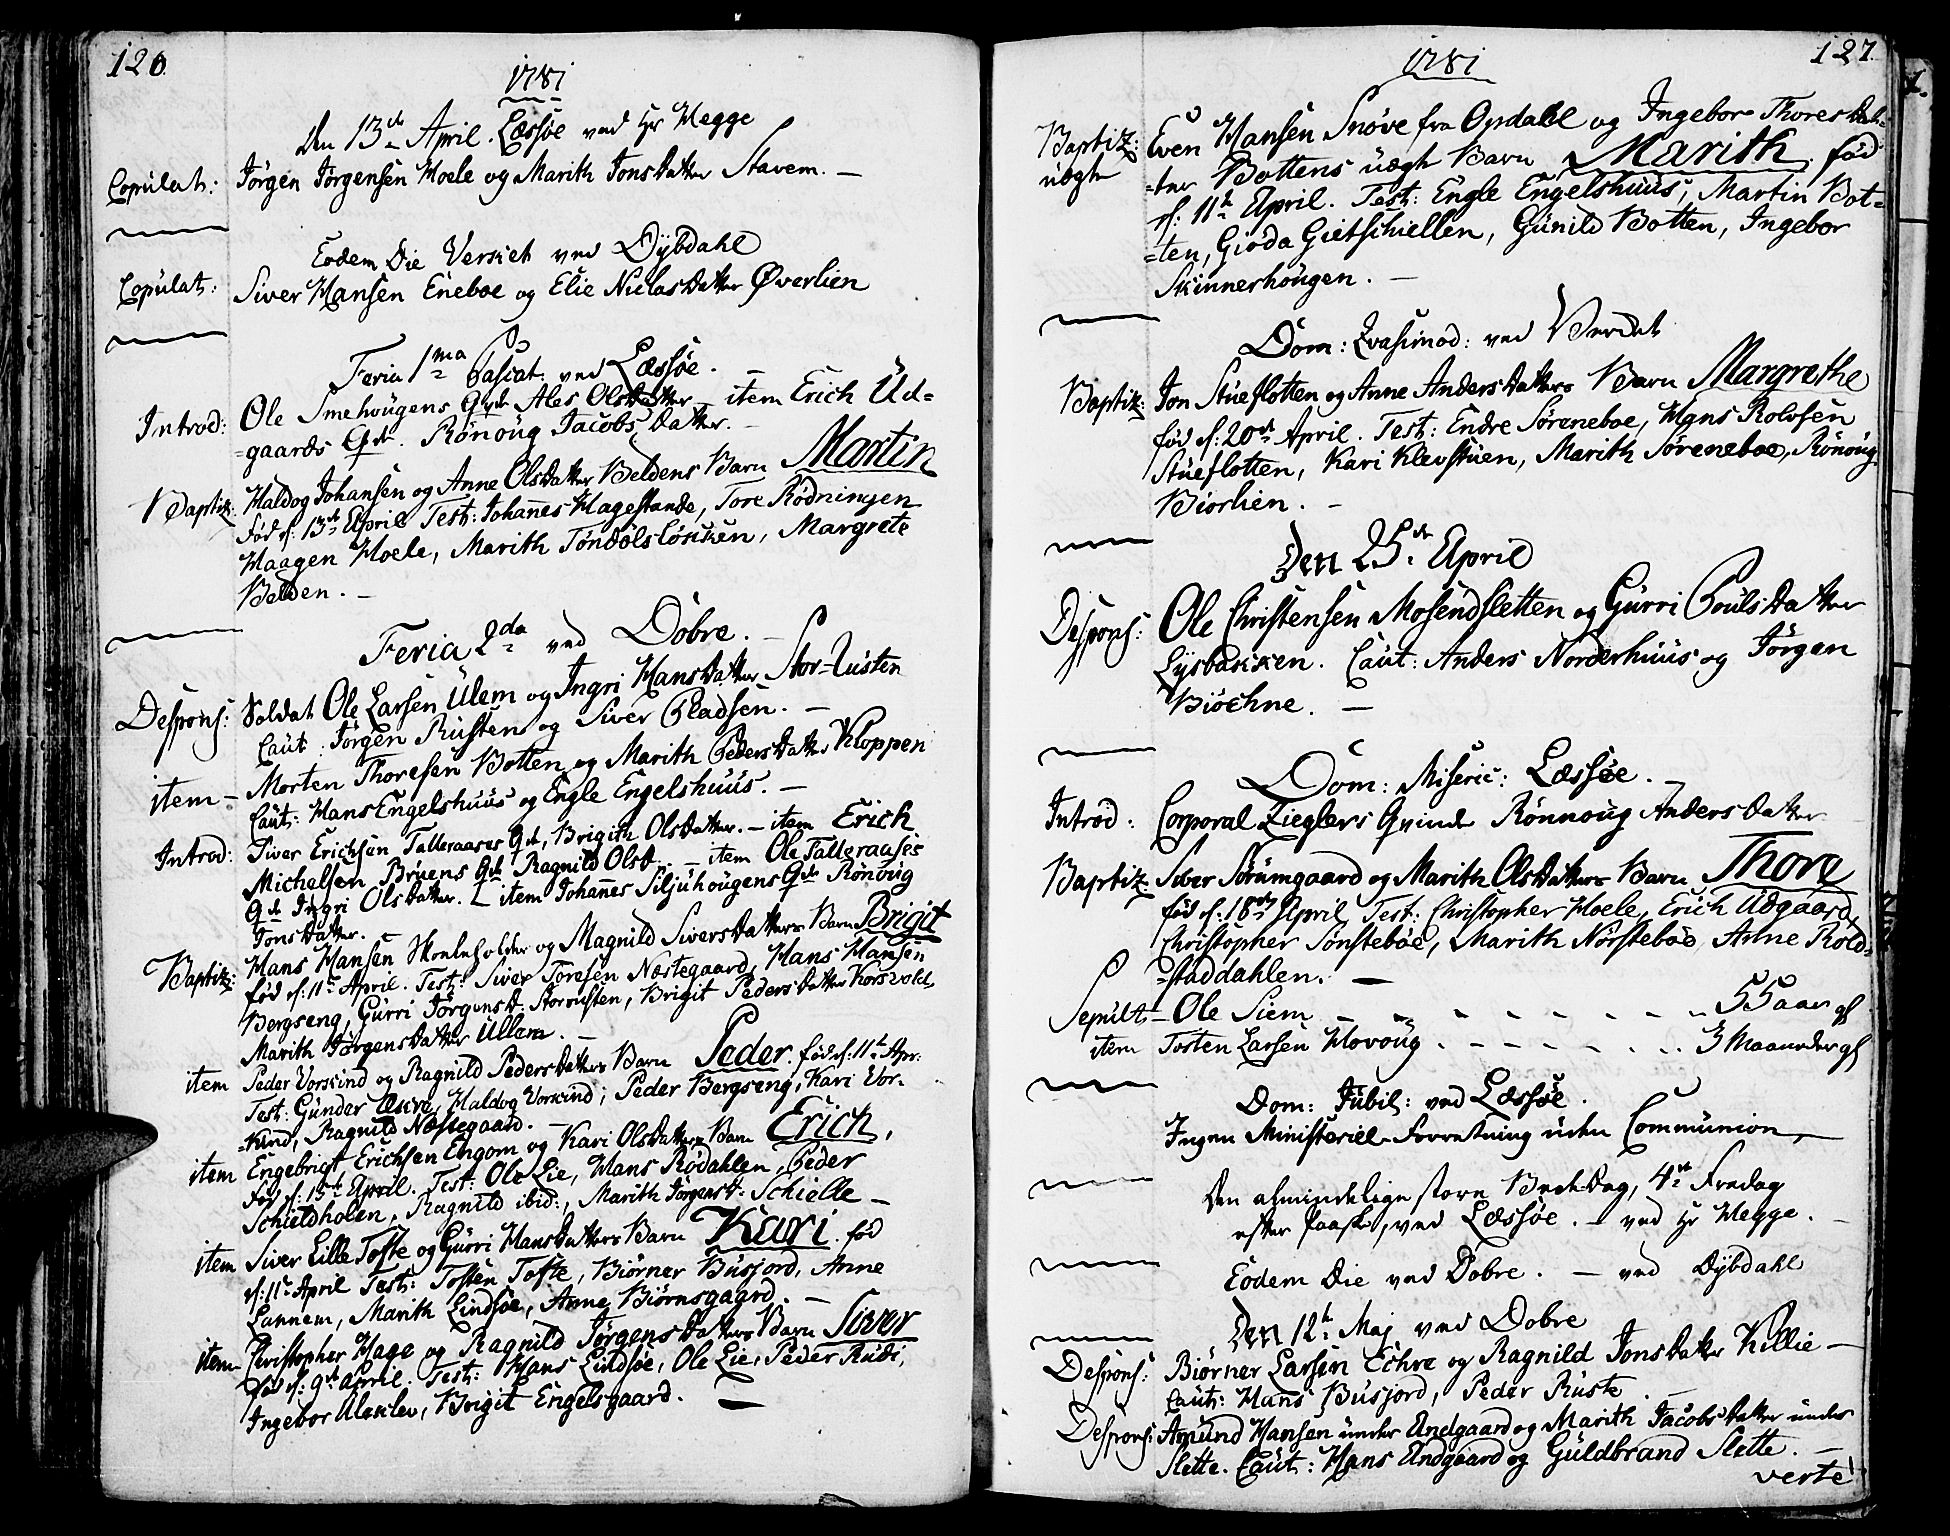 126.
1781
den 13de April. Læssøe ved Hr Hegge
Copulat: Jørgen Jørgensen Hoele og Marith Jonsdatter Stavem. –
Eodem Die Verket ved Dÿbdahl
Copulat: Siver Hansen Eneboe og Elie Niclasdatter Øverlien
Feria 1ma Pascat: ved Læssøe. –
Introd: Ole Smehougens Qvde Ales Olsdatter – item Erich Ud=
=gaards Qde. Rønoug Jacobsdatter. –
Baptiz: Haldog Johansen og Anne Olsdatter Beldens Barn Martin
fød d: 13de April Test: Johanes Hagestande, Tore Rødningen
Haagen Hoele, Marith Tøndølsløkken, Margrete
Belden. –
Feria 2da ved Dobre. –
Despons: Soldat Ole Larsen Ulem og Ingri Hansdatter Stor-Rusten
Caut: Jørgen Rusten og Siver Pladsen. –
item – Morten Thoresen Botten og Marith Pedersdatter Kloppen
Caut: Hans Engelshuus og Engle Engelshuus. –
Introd: Siver Erichsen Talleraases Qde, Brigith Olsdatter. – item Erich
Michelsen Bruens Qde Ragnild Olsd. – item Ole Talleraases
Qde Ingri Olsdatter. – item Johanes Siljuhougens Qde Rønoug
Jonsdatter. –
Baptiz: Hans Hansen Skoleholder og Magnild Siversdatters Barn Brigit
fød d: 11te April. Test: Siver Toresen Næstegaard, Hans Hansen
Bergseng, Gurri Jørgensd. Storrusten, Brigit Pedersdatter Korsvold,
Marith Jørgensdatter Ullem. –
item Peder Vorkind og Ragnild Pedersdatters Barn Peder. fød d: 11te Apr:
Test: Gunder Ekre, Haldog Vorkind, Peder Bergseng, Kari Vor-
=kind, Ragnild Næstegaard. –
item Engebrigt Erichsen Engom og Kari Olsdatters Barn Erich,
fød d: 15de April. Test: Ole Lie, Hans Rødahlen, Peder
Schieldholen, Ragnild ibid:, Marith Jørgensd: Schielle –
item Siver Lille Tofte og Gurri Hansdatters Barn Kari. fød
d: 11te April Test: Tosten Tofte, Biørner Busjord, Anne
Lannem, Marith Lindsøe, Anne Biørnsgaard. –
item Christopher Hage og Ragnild Jørgensdatters Barn Siver
fød d: 9de April. Test: Hans Lindsøe, Ole Lie, Peder Rudi,
Ingebor Uleklev, Brigit Engelsgaard. –
127.
1781
Baptiz: Even Hansen Snøve fra Opdahl og Ingebor Thoresdat-
uægte =ter Bottens uægte Barn Marith. fød
d: 11te April. Test: Engle Engelshuus, Martin Bot=
=ten, Gioda Gietschiellen, Gunild Botten, Ingebor
Skinnerhougen. –
Dom: Qvasimod: ved Verket
Baptiz: Jon Stueflotten og Anne Andersdatters Barn Margrethe
fød d: 20de April. Test: Endre Søreneboe, Hans Rolvsen
Stueflotten, Kari Klevstuen, Marith Søreneboe, Rønoug
Biorlien. –
Den 25de April
Despons: Ole Christensen Mosendsletten og Gurri Poulsdatter
Lysbakken. Caut: Anders Norderhuus og Jørgen
Biøchne. –
Dom: Miseric: Læssøe. –
Introd: Corporal Zieglers Qvinde Rønnoug Andersdatter
Baptiz Siver Sørumgaard og Marith Olsdatters Barn Thore
fød d: 18de April Test: Christopher Hoele, Erich Udgaard,
Christopher Sønsteboe, Marith Nørsteboe Anne Rold=
=staddahlen. –
Sepult – Ole Siem - - - - - - - 55 aar gl
item Tosten Larsen Hovoug - - - - - - 3 Maaneder gl
Dom: Jubil: ved Læssøe.
Ingen Ministeriel-Forretning uden Communion –
Den almindelige store Bededag, 4de Fredag
efter Paaske, ved Læssøe. – ved Hr Hegge. –
Eodem Die ved Dobre. – ved Dÿbdahl
Den 12te Maj ved Dobre
Despons: Biørner Larsen Echre og Ragnild Jonsdatter Killie –
Caut: Hans Busjord, Peder Ruste. –
Despons: Amund Hansen under Andgaard og Marith Jacobsdatter under
Slette. Caut: Hans Andgaard og Guldbrand Slette. –
verte!